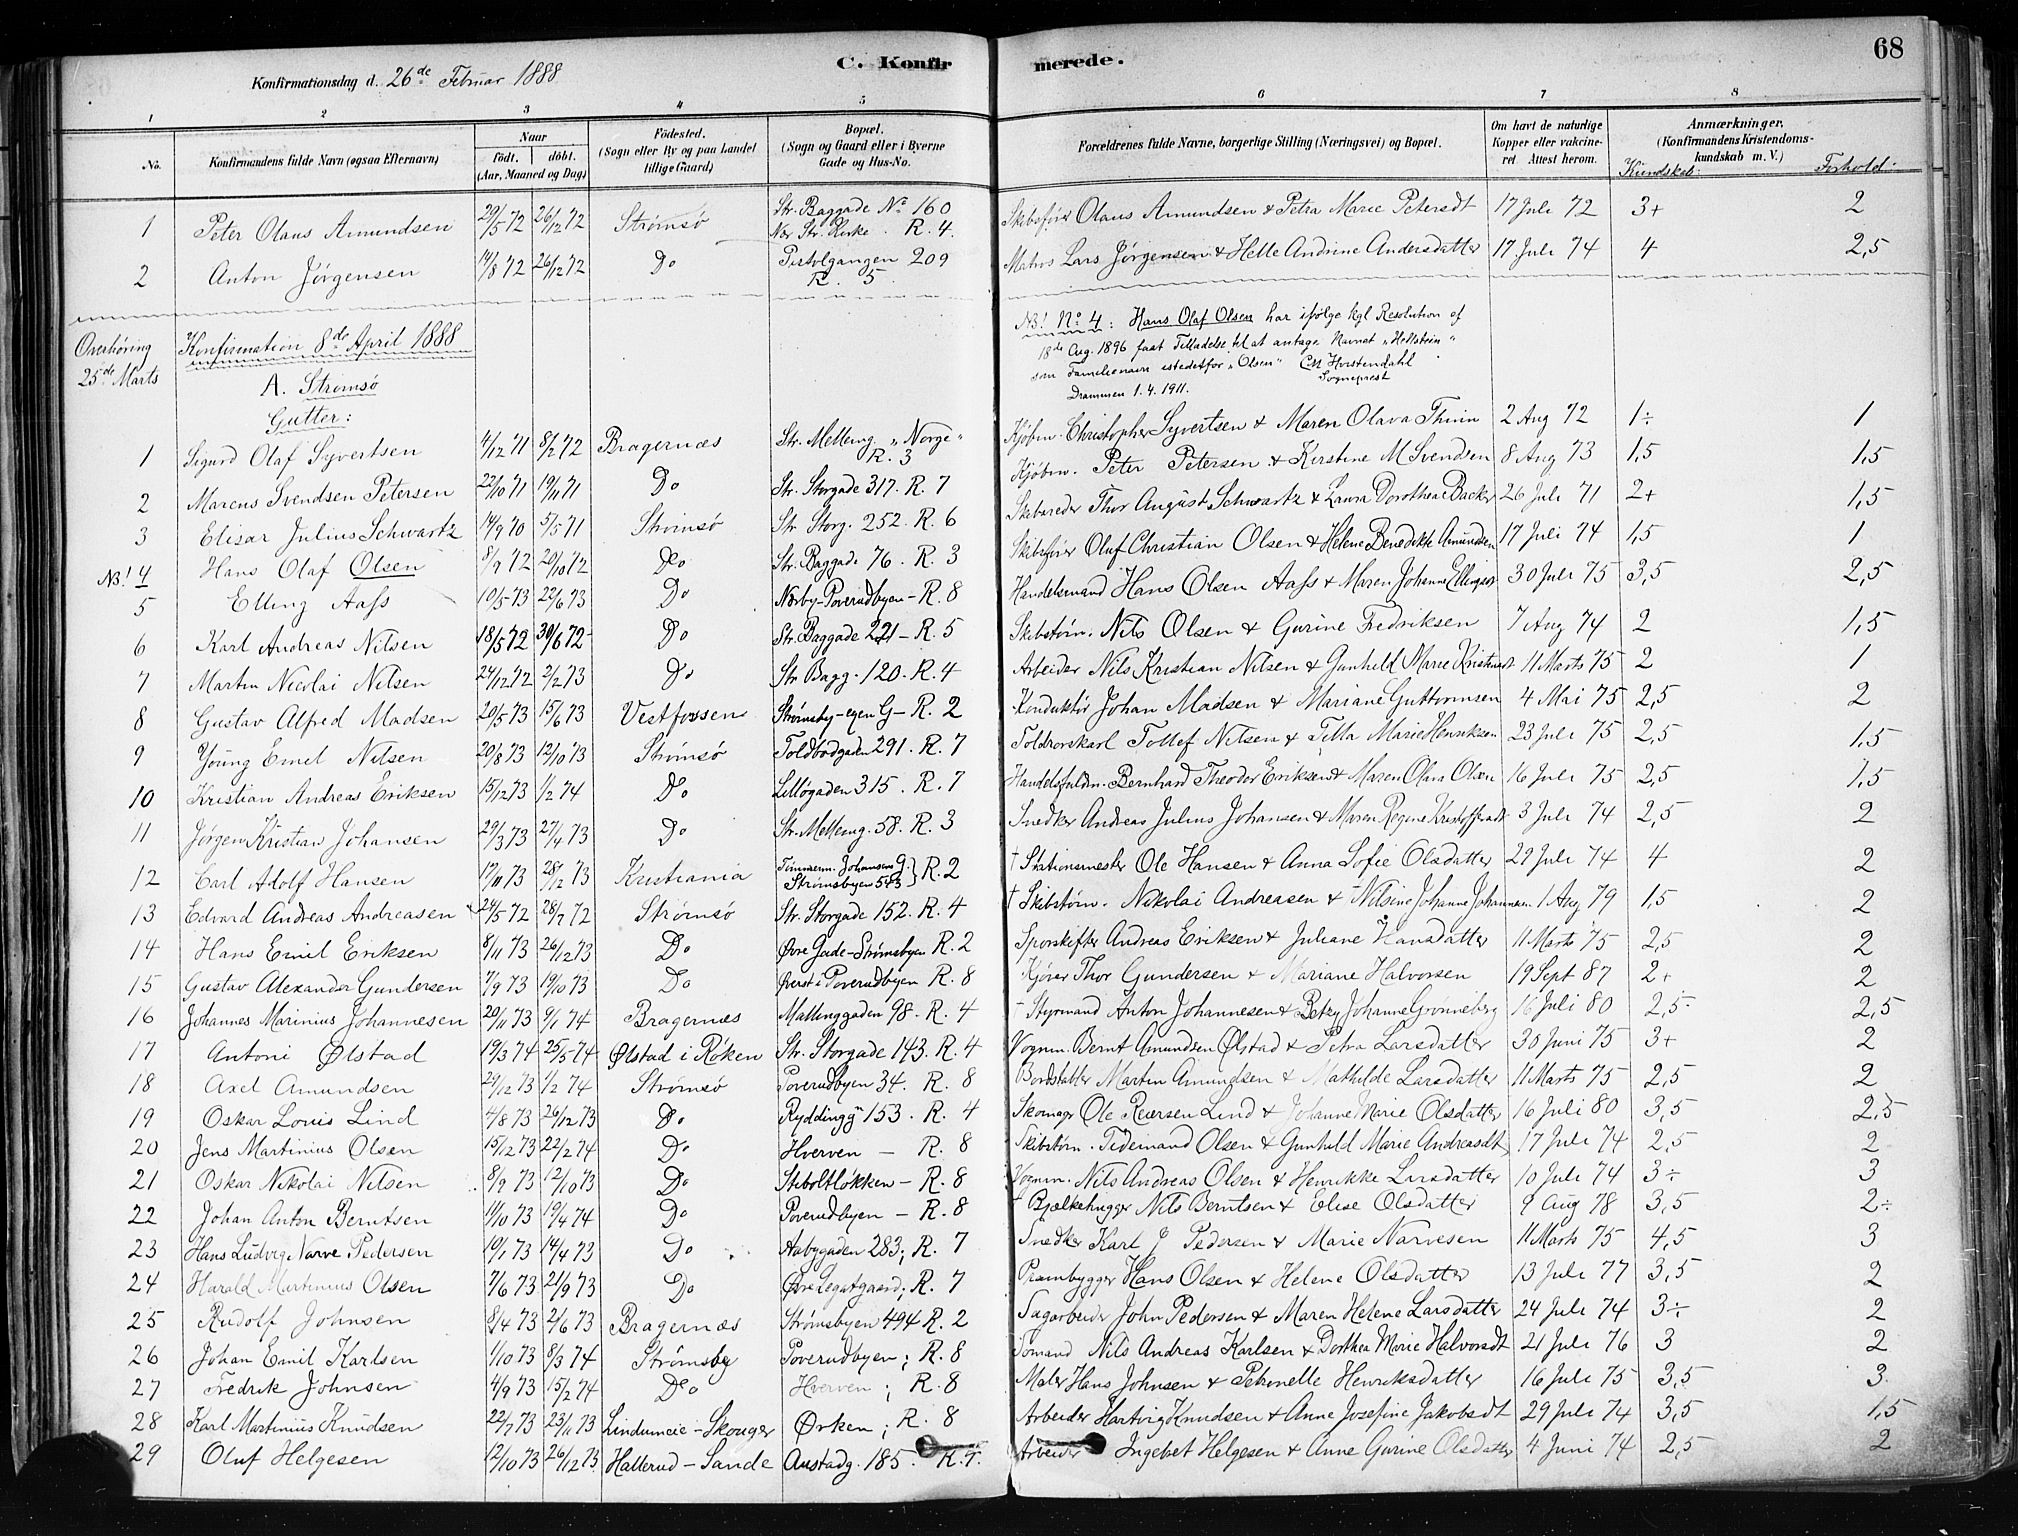 68
C. Konfirmerede.
Konfirmationsdag d. 26de Februar 1888
1 2 3 4 5 6 7 8
No.
Konfirmandens fulde Navn (ogsaa Efternavn)
Naar
født. døbt.
(Aar, Maaned og Dag)
Fødested.
(Sogn eller By og paa Landet tillige Gaard)
Bopæl.
(Sogn og Gaard eller i Byerne Gade og Hus-No.
Forældrenes fulde Navne, borgerlige Stilling (Næringsvei) og Bopæl.
Om havt de naturlige Kopper eller vakcineret. Attest herom.
Anmærkninger.
(Konfirmandens Kristendomskundskab m. V.)
Kundskab: Forhold:
1 Peter Olaus Amundsen 29/5 72 26/12 72 Strømsø Str. Baggade No 160 Nær Str. Kirke. R. 4. Skibsfører Olaus Amundsen & Petra Marie Petersdt 17 Juli 72 3+ 2
2 Anton Jørgensen 14/8 72 26/12 72 Do Pistolgangen 209 R. 5 Matros Lars Jørgensen & Helle Andrine Andersdatter 17 Juli 74 4 2,5
Overhøring 25de Marts
Konfirmation 8de April 1888
A. Strømsø
Gutter:
NB! No 4: Hans Olaf Olsen har ifølge kgl Resolution af
18de Aug. 1896 faat Tilladelse til at antage Navnet "Hellstein"
som Familienavn istedetfor "Olsen" CM Horstendahl
Sogneprest
Drammen 1.4.1911.
1 Sigurd Olaf Syvertsen 4/12 71 8/2 72 Bragernæs Str. Mellemg. "Norge" R. 3 Kjøbm. Christopher Syvertsen & Maren Olava Thrin 2 Aug 72 1÷ 1
2 Marcus Svendsen Petersen 22/10 71 19/11 71 Do Str. Storgade 317. R. 7 Kjøbm. Peter Petersen & Kirstine M Svendsen 8 Aug 73 1,5 1,5
3 Elisar Julius Schwartz 14/9 70 5/5 71 Strømsø Str Storg. 252. R. 6 Skibsreder Thor August Schwartz & Laura Dorothea Backer 26 Juli 71 2+ 1,5
NB! 4 Hans Olaf Olsen 8/9 72 20/10 72 Do Str. Baggade 76. R. 3 Skibsfører Oluf Christian Olsen & Helene Benedikte Amundsen 17 Juli 74 1,5 1
5 Elling Aass 10/5 73 22/6 73 Do Nørby-Poverudbyen - R. 8 Handelsmand Hans Olsen Aass & Maren Johanne Ellingsdt 30 Juli 75 3,5 2,5
6 Karl Andreas Nilsen 18/5 72 30/6 72 Do Str. Baggade 221 - R. 5 Skibstøm. Nils Olsen & Gurine Fredriksen 7 Aug 74 2 1,5
7 Martin Nicolai Nilsen 24/12 72 2/2 73 Do Str Bagg. 120. R. 4 Arbeider Nils Kristian Nilsen & Gunhild Marie Kristiansdt 11 Marts 75 2 1
8 Gustav Alfred Madsen 20/5 73 15/6 73 Vestfossen Strømsby-egen G - R. 2 Konduktør Johan Madsen & Mariane Guttormsen 4 Mai 75 2,5 2
9 Young Emil Nilsen 20/8 73 12/10 73 Strømsø Toldbodgaden 291. R. 7 Toldrorskarl Tollef Nilsen & Tilla Marie Henriksen 23 Juli 75 2,5 1,5
10 Kristian Andreas Eriksen 15/12 73 1/2 74 Do Lilløgaden 315. R. 7 Handelsfuldm. Bernhard Theodor Eriksen & Maren Olava Olsen 16 Juli 75 2,5 1,5
11 Jørgen Kristian Johansen 29/3 73 27/4 73 Do Str. Mellemg. 58. R. 3 Snedker Andreas Julius Johansen & Maren Regine Kristoffersdt 3 Juli 74 2,5 2
12 Carl Adolf Hansen 17/11 73 28/12 73 Kristiania Tømmerm. Johansens G. Strømsbyen 543 } R. 2 † Stationsmester Ole Hansen & Anna Sofie Olsdatter 29 Juli 74 4 2
13 Edvard Andreas Andreasen 24/5 72 28/7 72 Strømsø Str. Storgade 152. R. 4 † Skibstøm. Nikolai Andreasen & Nilsine Johanne Johannesen 1 Aug 79 1,5 2
14 Hans Emil Eriksen 8/11 73 26/12 73 Do Øvre Gade-Strømsbyen R. 2 Sporskifter Andreas Eriksen & Juliane Hansdatter 11 Marts 75 2,5 2
15 Gustav Alexander Gundersen 7/9 73 19/10 73 Do Øverst i Poverudbyen R. 8 Kjører Thor Gundersen & Mariane Halvorsen 19 Sept 87 2+ 2
16 Johannes Marinius Johannesen 20/11 73 9/1 74 Bragernæs Mallinggaden 98. R. 4 † Styrmand Anton Johannesen & Betzy Johanne Grønneberg 16 Juli 80 2,5 2,5
17 Antoni Ølstad 19/3 74 25/5 74 Ølstad i Røken Str. Storgade 143. R. 4 Vognm. Bernt Amundsen Ølstad & Petra Larsdatter 30 Juni 75 3+ 2
18 Axel Amundsen 29/12 73 1/2 74 Strømsø Poverudbyen 34. R. 8 Bordstabler Martin Amundsen & Mathilde Larsdatter 11 Marts 75 2,5 2
19 Oskar Louis Lind 4/8 73 26/12 73 Do Ryddingg 153. R. 4 Skomager Ole Reiersen Lind & Johanne Marie Olsdatter 16 Juli 80 3,5 2,5
20 Jens Martinius Olsen 15/12 73 22/2 74 Do Hverven - R. 8 Skibstøm. Tidemand Olsen & Gunhild Marie Andreasdt 17 Juli 74 2,5 2
21 Oskar Nikolai Nilsen 8/9 73 12/10 73 Do Stiboltløkken - R. 8 Vognm. Nils Andreas Olsen & Henrikke Larsdatter 10 Juli 74 3÷ 3
22 Johan Anton Berntsen 11/10 73 19/4 74 Do Poverudbyen - R. 8 † Bjælkehugger Nils Berntsen & Elise Olsdatter 9 Aug 78 3,5 2÷
23 Hans Ludvig Narve Pedersen 10/1 73 14/4 73 Do Aabygaden 283; R. 7 Snedker Karl P Pedersen & Marie Narvesen 11 Marts 75 4,5 3
24 Harald Martinius Olsen 7/6 73 21/9 73 Do Øvre Legatgaard; R. 7 Prambygger Hans Olsen & Helene Olsdatter 13 Juli 77 3,5 2
25 Rudolf Johnsen 8/4 73 2/6 73 Bragernæs Strømsbyen 494 R. 2 Sagarbeider John Pedersen & Maren Helene Larsdatter 24 Juli 74 3÷ 2
26 Johan Emil Karlsen 1/10 73 8/3 74 Strømsby Poverudbyen; R. 8 Sømand Nils Andreas Karlsen & Dorthea Marie Halvorsdt 21 Juli 76 3 2
27 Fredrik Johnsen 4/9 73 15/2 74 Do Hverven; R. 8 Maler Hans Johnsen & Petronelle Henriksdatter 16 Juli 75 3,5 3
28 Karl Martinius Knudsen 22/7 73 23/11 73 Lindumeie-Skouger Ørken; R. 8 Arbeider Hartvig Knudsen & Anne Josefine Jakobsdt 29 Juli 74 3,5 1,5
29 Oluf Helgesen 12/10 73 26/12 73 Hallerud - Sande Austadg. 185. R. 7. Arbeider Ingebret Helgesen & Anne Gurine Olsdatter 4 Juni 74 2,5 2